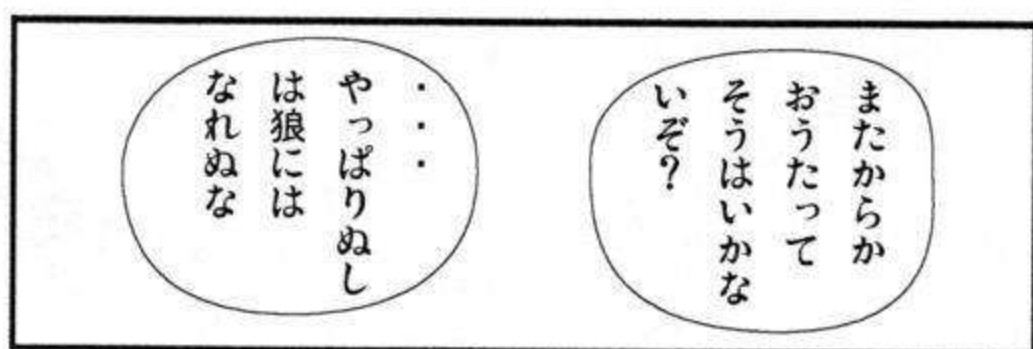 またからか
おうたって
そうはいかな
いぞ?
・・・
やっぱりぬし
は狼には
なれぬな